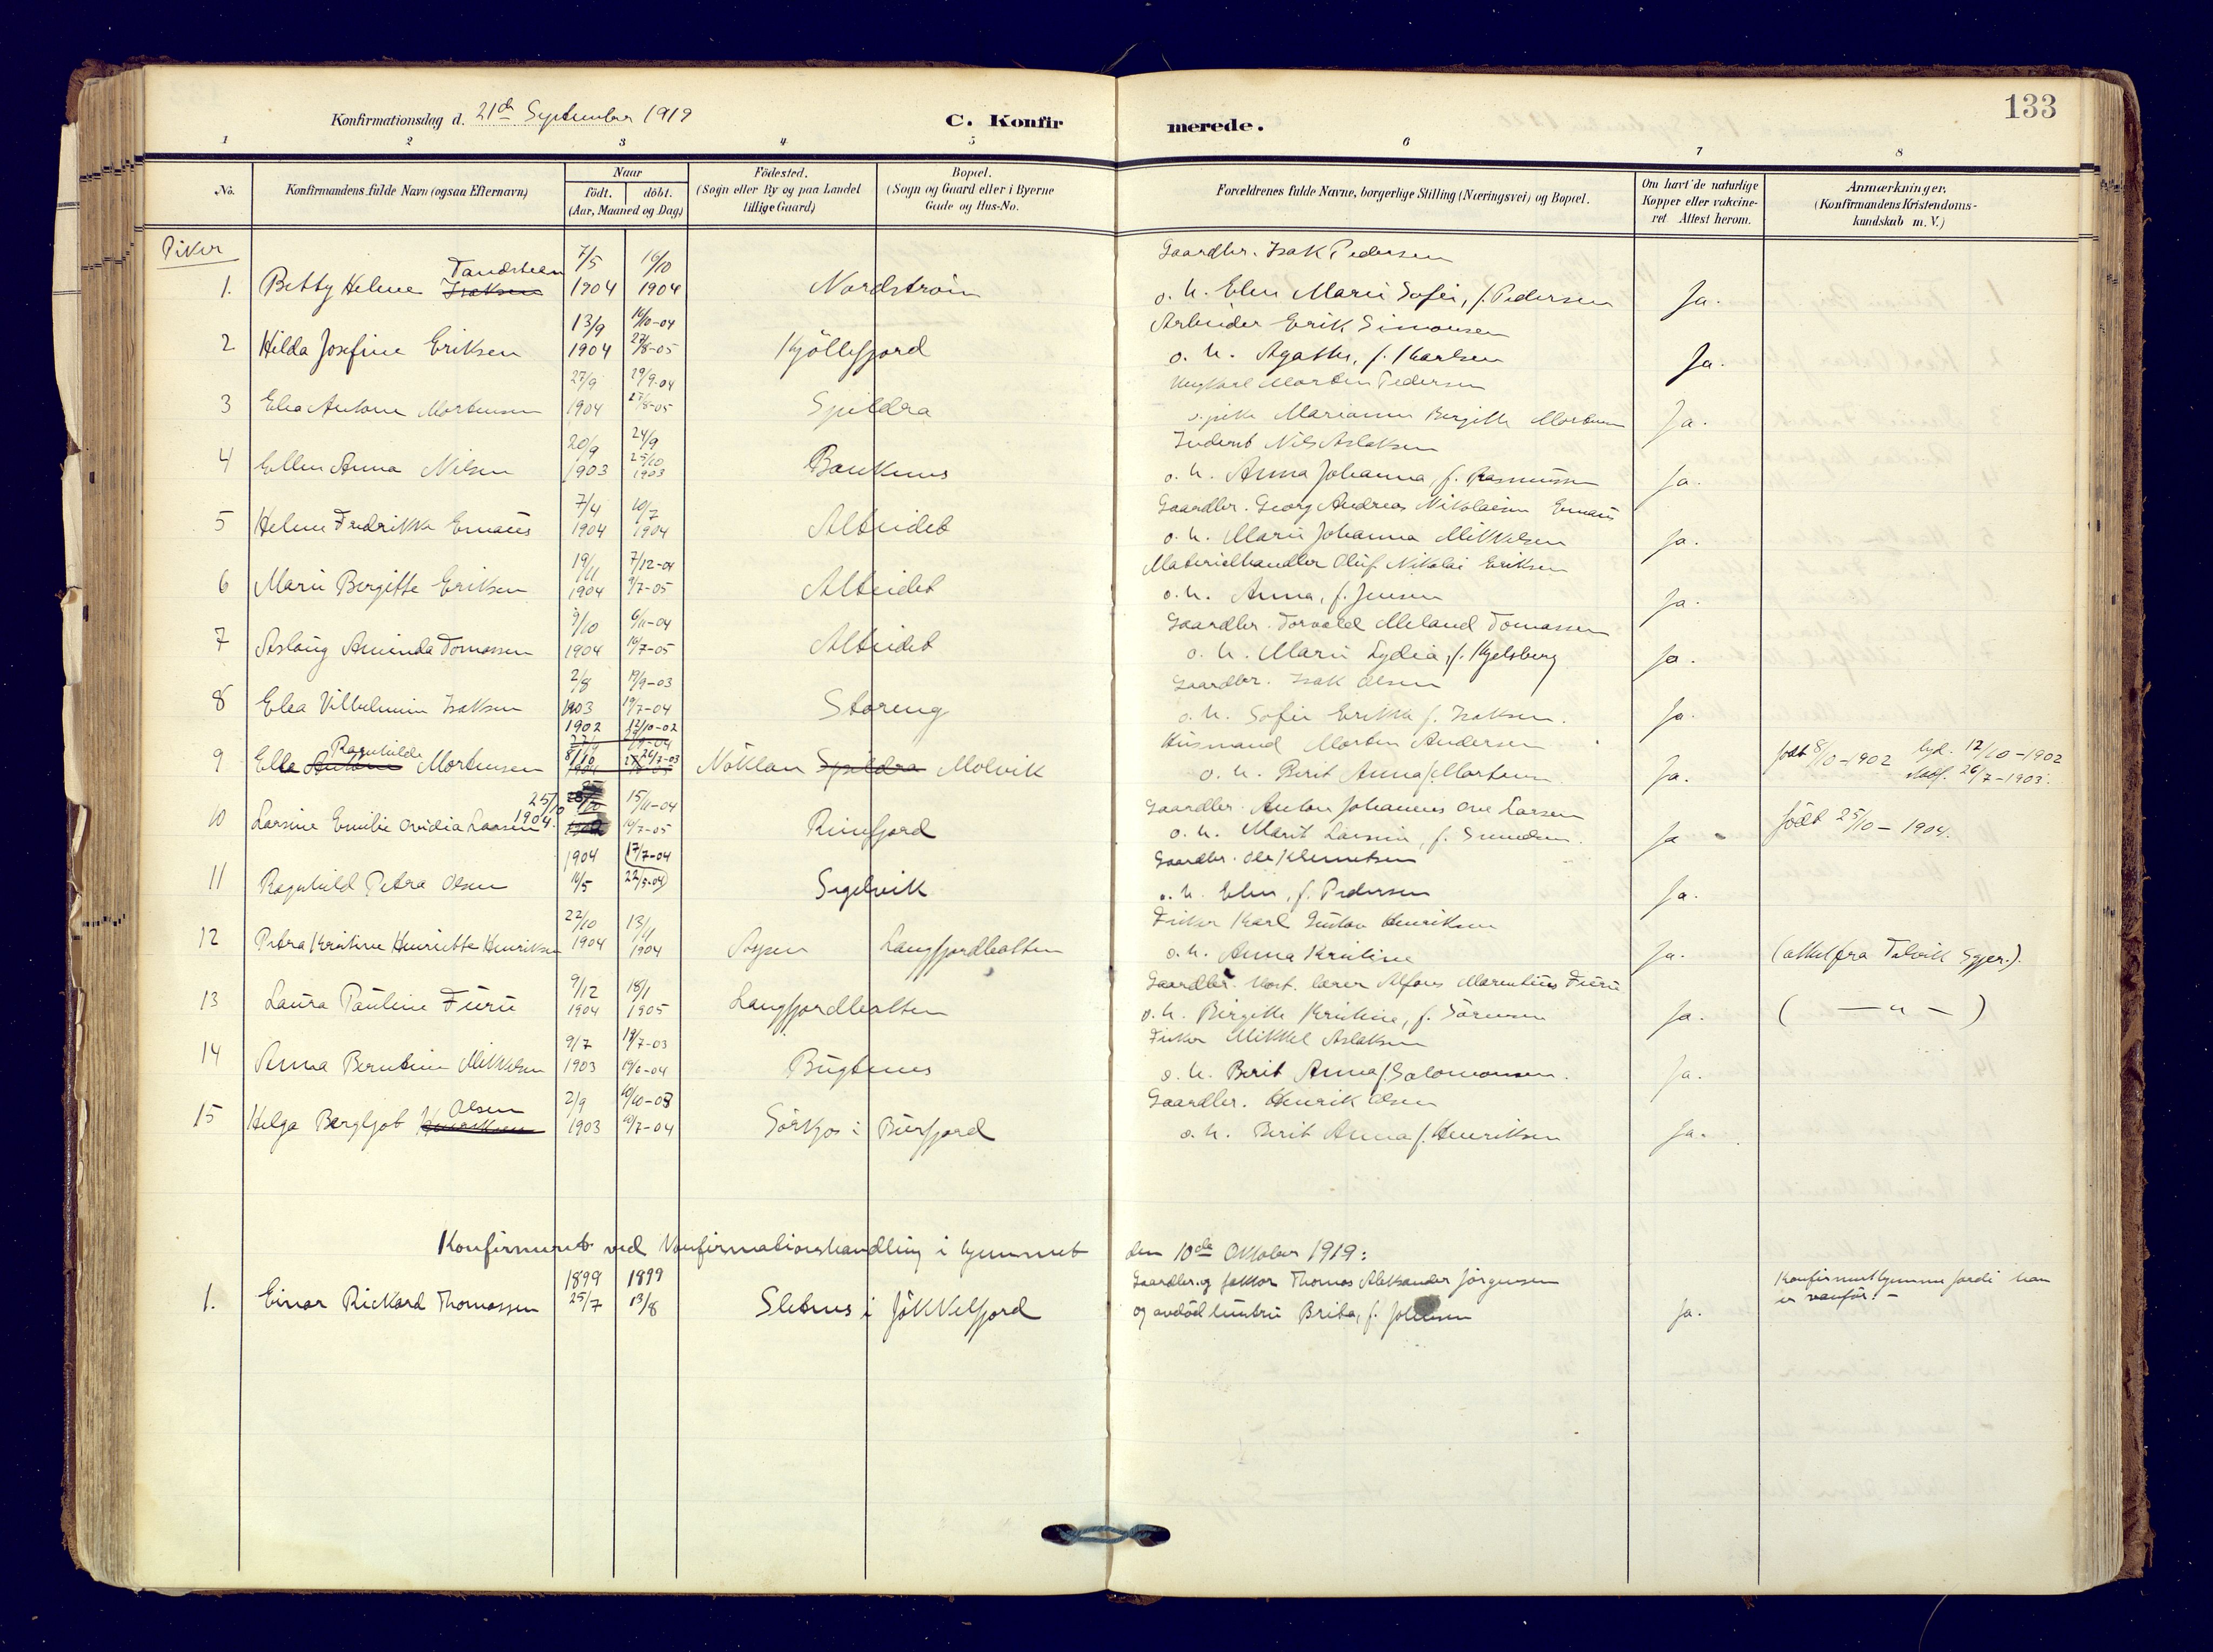 133
Konfirmationsdag d. 21de September 1919 C. Konfirmerede.
1 2 3 4 5 6 7 8
No. Konfirmandens fulde Navn (ogsaa Efternavn) Naar født. døbt. (Aar, Maaned og Dag) Fødested. (Sogn eller By og paa Landet tillige Gaard) Bopæl. (Sogn og Gaard eller i Byerne Gade og Hus-No. Forældrenes fulde Navne, borgerlige Stilling (Næringsvei) og Bopæl. Om havt de naturlige Kopper eller vakcineret. Attest herom. Anmærkninger. (Konfirmandens Kristendomskundskab m. V.)
Piker
1. Betty Helene Isaksen Tandsteen 7/5 1904 16/10 1904 Nordström Gaardbr. Isak Pedersen
o. h. Elen Marie Sofie, f. Pedersen Ja.
2 Hilda Josefine Eriksen 13/9 1904 16/10-04 27/8-05 Kjöllefjord Arbeider Erik Simonsen
o. h. Agathe, f. Karlsen Ja.
3 Elea Antone Mortensen 27/9 1904 29/9-04 27/8-05 Spildra Ungkarl Morten Pedersen
o. pike Marianne Bergitte Mortensen Ja.
4 Ellen Anna Nilsen 20/9 1903 24/9 25/10 1903 Bankenes Inderst Nils Aslaksen
o. h. Anna Johanna, f. Rasmussen Ja.
5 Helene Fredrikke Emaus 7/4 1904 10/7 1904 Alteidet Gaardbr. Georg Andreas Nikolaisen Emaus
o. h. Marie Johanna Mikkelsen Ja.
6 Marie Bergitte Eriksen 19/11 1904 7/12-04 9/7-05 Alteidet Materialhandler Oluf Nikolai Eriksen
o. h. Anna, f. Jensen Ja.
7 Aslaug Aminda Tomassen 9/10 1904 6/11-04 16/7-05 Alteidet Gaardbr. Torvald Meland Tomassen
o. h. Marie Lydia, f. Kjelsberg Ja.
8 Elea Vilhelmine Isaksen 2/8 1903 19/9-03 19/7-04 Storeng Gaardbr. Isak Olsen
o. h. Sofie Erikke f. Isaksen. Ja.
9 Elle Antone Ragnhilde Mortensen 1902 8/10 12/10-02 26/7-03 Nöklan Spildra Molvik Husmand Morten Andersen
o. h. Berit Anna f. Mortensen Ja. født 8/10-1902 hjd. 12/10-1902
26/7-1903.
10 Larsine Emilie Ovidia Larsen 25/10 1904. 15/11-04 16/7-05 Reinfjord Gaardbr. Anton Johannes Ove Larsen
o. h. Marit Larsine, f. Ja født 25/10-1904.
11 Ragnhild Petra Olsen 1904 16/5 17/7-04 22/5-04 Segelvik Gaardbr. Ole Klemetsen
o. h. Elen, f. Pedersen Ja.
12 Petra Kristine Henriette Henriksen 22/10 1904 13/11 1904 Langfjordbotten Fisker Karl Gustav Henriksen
o. h. Anna Kristine Ja. (attest fra Talvik Sgpr.).
13 Laura Pauline Furu 9/12 1904 18/1 1905 Langfjordbotten Gaardbr. lærer Alfons Marentius Furu
o. h. Birgitte Kristine, f. Sörensen Ja. ( — " — )
14 Anna Berntine Mikkelsen 9/7 1903 19/7-03 19/6-04 Bugtenes Fisker Mikkel Aslaksen
o. h. Berit Anna f. Salomonsen. Ja.
15 Helga Bergljot Henriksen Olsen 2/9 1903 10/10-03 10/7-04 Sörkjos i Burfjord Gaardbr. Henrik Olsen
o. h. Berit Anna f. Henriksen Ja.
Konfirmeret ved Konfirmationshandling i hjemmet den 10de Oktober 1919:
1. Einar Rickard Thomassen 1899 25/7 1899 13/8 Sletnes i Jökkelfjord Gaardbr. og faktor Thomas Aleksander Jörgensen
og avdöd hustru Brita, f. Ja. Konfirmert hjemme fordi han
er vanför. -